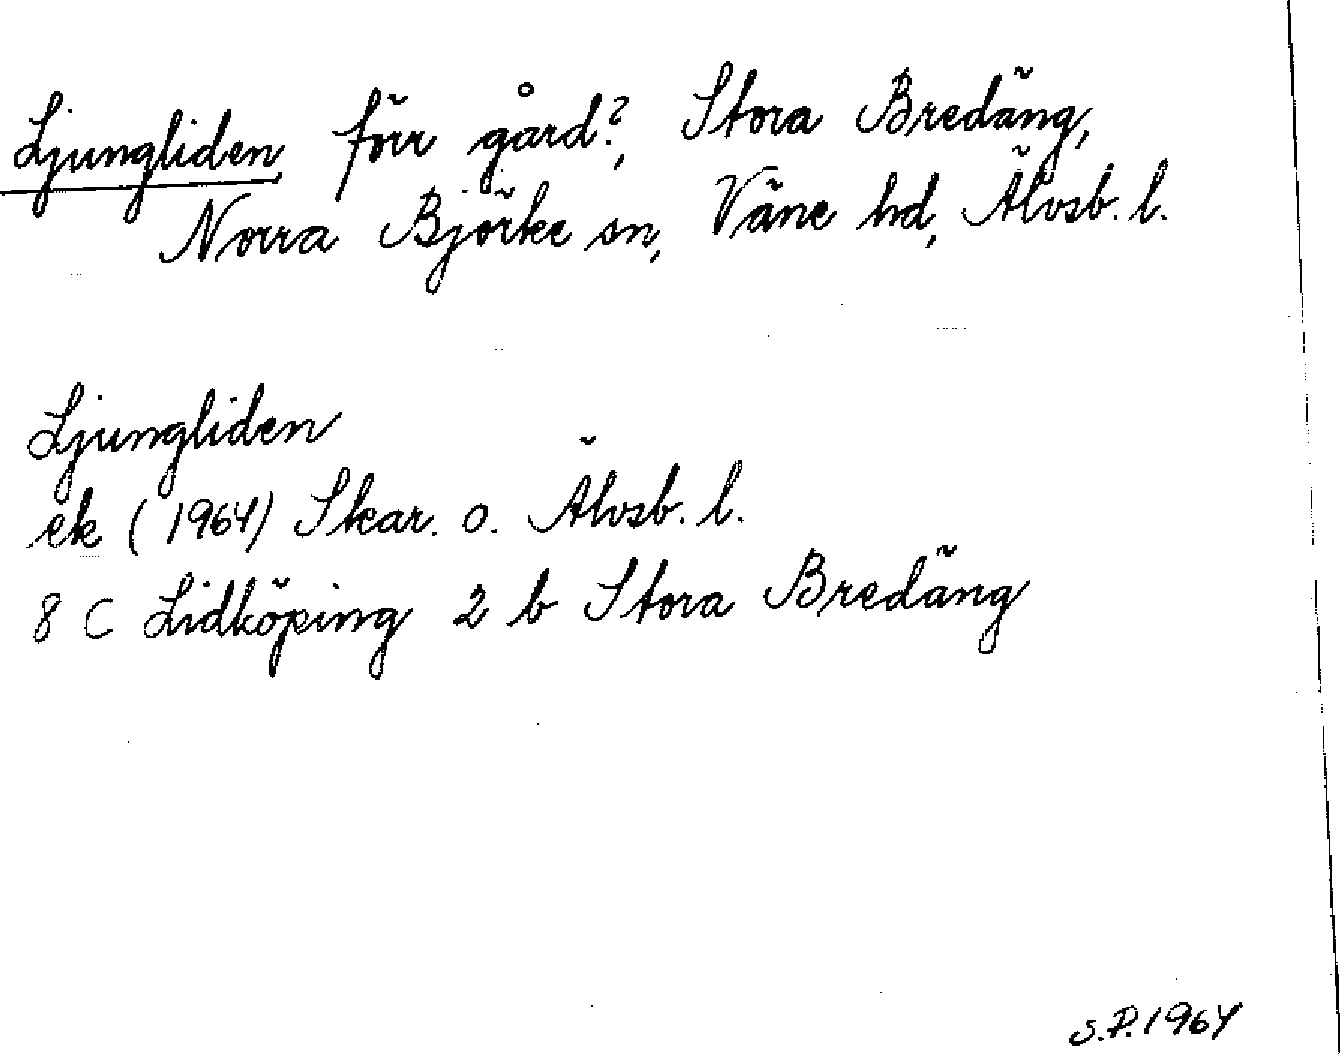 Ljungliden, förr gård?, Stora Bredäng,
Norra Björke sn, Väne hd, Älvsb. l.
Ljungliden
ek (1964) Skar. o. Älvsb. l.
8 C Lidköping 2 b Stora Bredäng
S.P. 1964